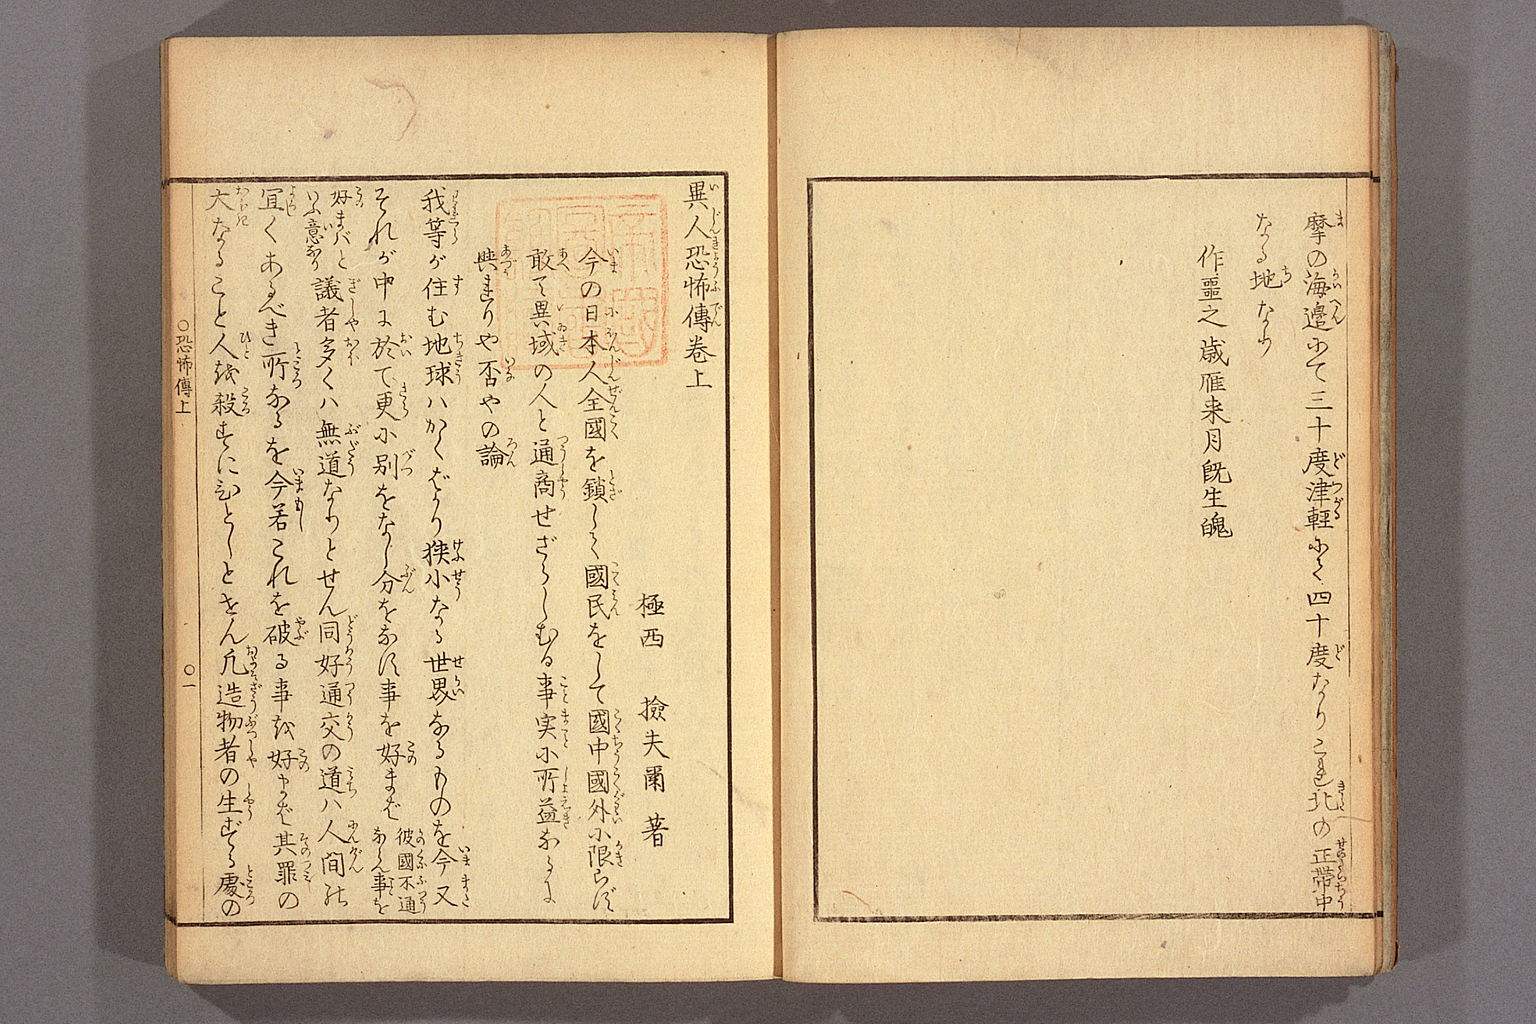 摩の海邉にて三十度津軽にて四十度なりこは北の正帯中
なる地なり
作噩之歳雁来月既生魄
異人恐怖傳巻上
極西 撿夫爾 著
今の日本人全國を鎖して國民をして國中國外に限らず
敢て異域の人と通商せざらしむる事実に所益なるに
與れりや否やの論
我等が住む地球ハかくばかり狭小なる世界なるものを今又
それが中に於て更に別をなし分をなす事を好まば彼國不通ならん事を
好まバといふ意なり議者多くハ無道なりとせん同好通交の道ハ人間の
宜くあるべき所なるを今若これを破る事を好まば其罪の
大なること人を殺すにひとしとせん凡造物者の生ずる處の
○恐怖傳上
○一